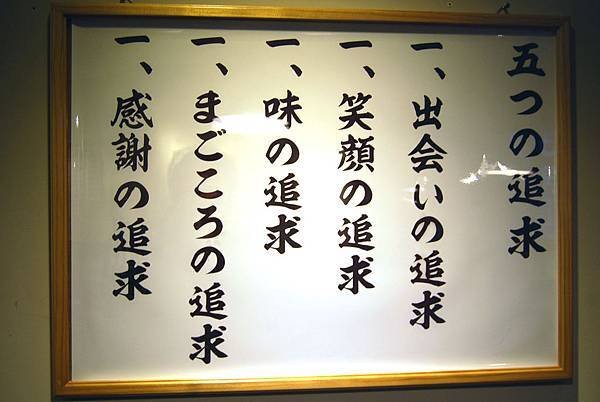 五つの追求
一、出会いの追求
一、笑顔の追求
一、味の追求
一、まごころの追求
一、感謝の追求